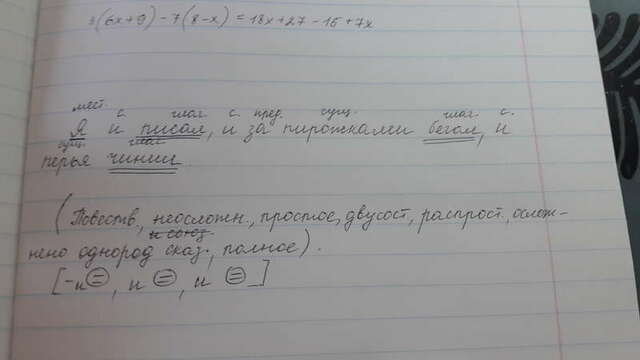 3(6x+9)-7(8-x)=18x+27-15+7x
мест. с. глаг с. пред. сущ. глаг. с.
Я и писал, и за пирожками бегал, и
сущ. глаг
перья чинил
(Повеств, неосложн., простое, двусост, распрост, ослож-
и союз.
нено однород сказ., полное).
[-и⊜, и ⊜, и ⊜_]